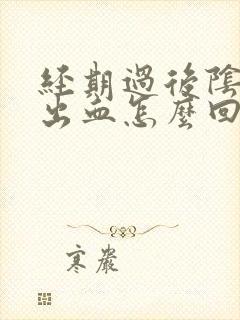 經期過後陰
出血怎麼回
寒嚴